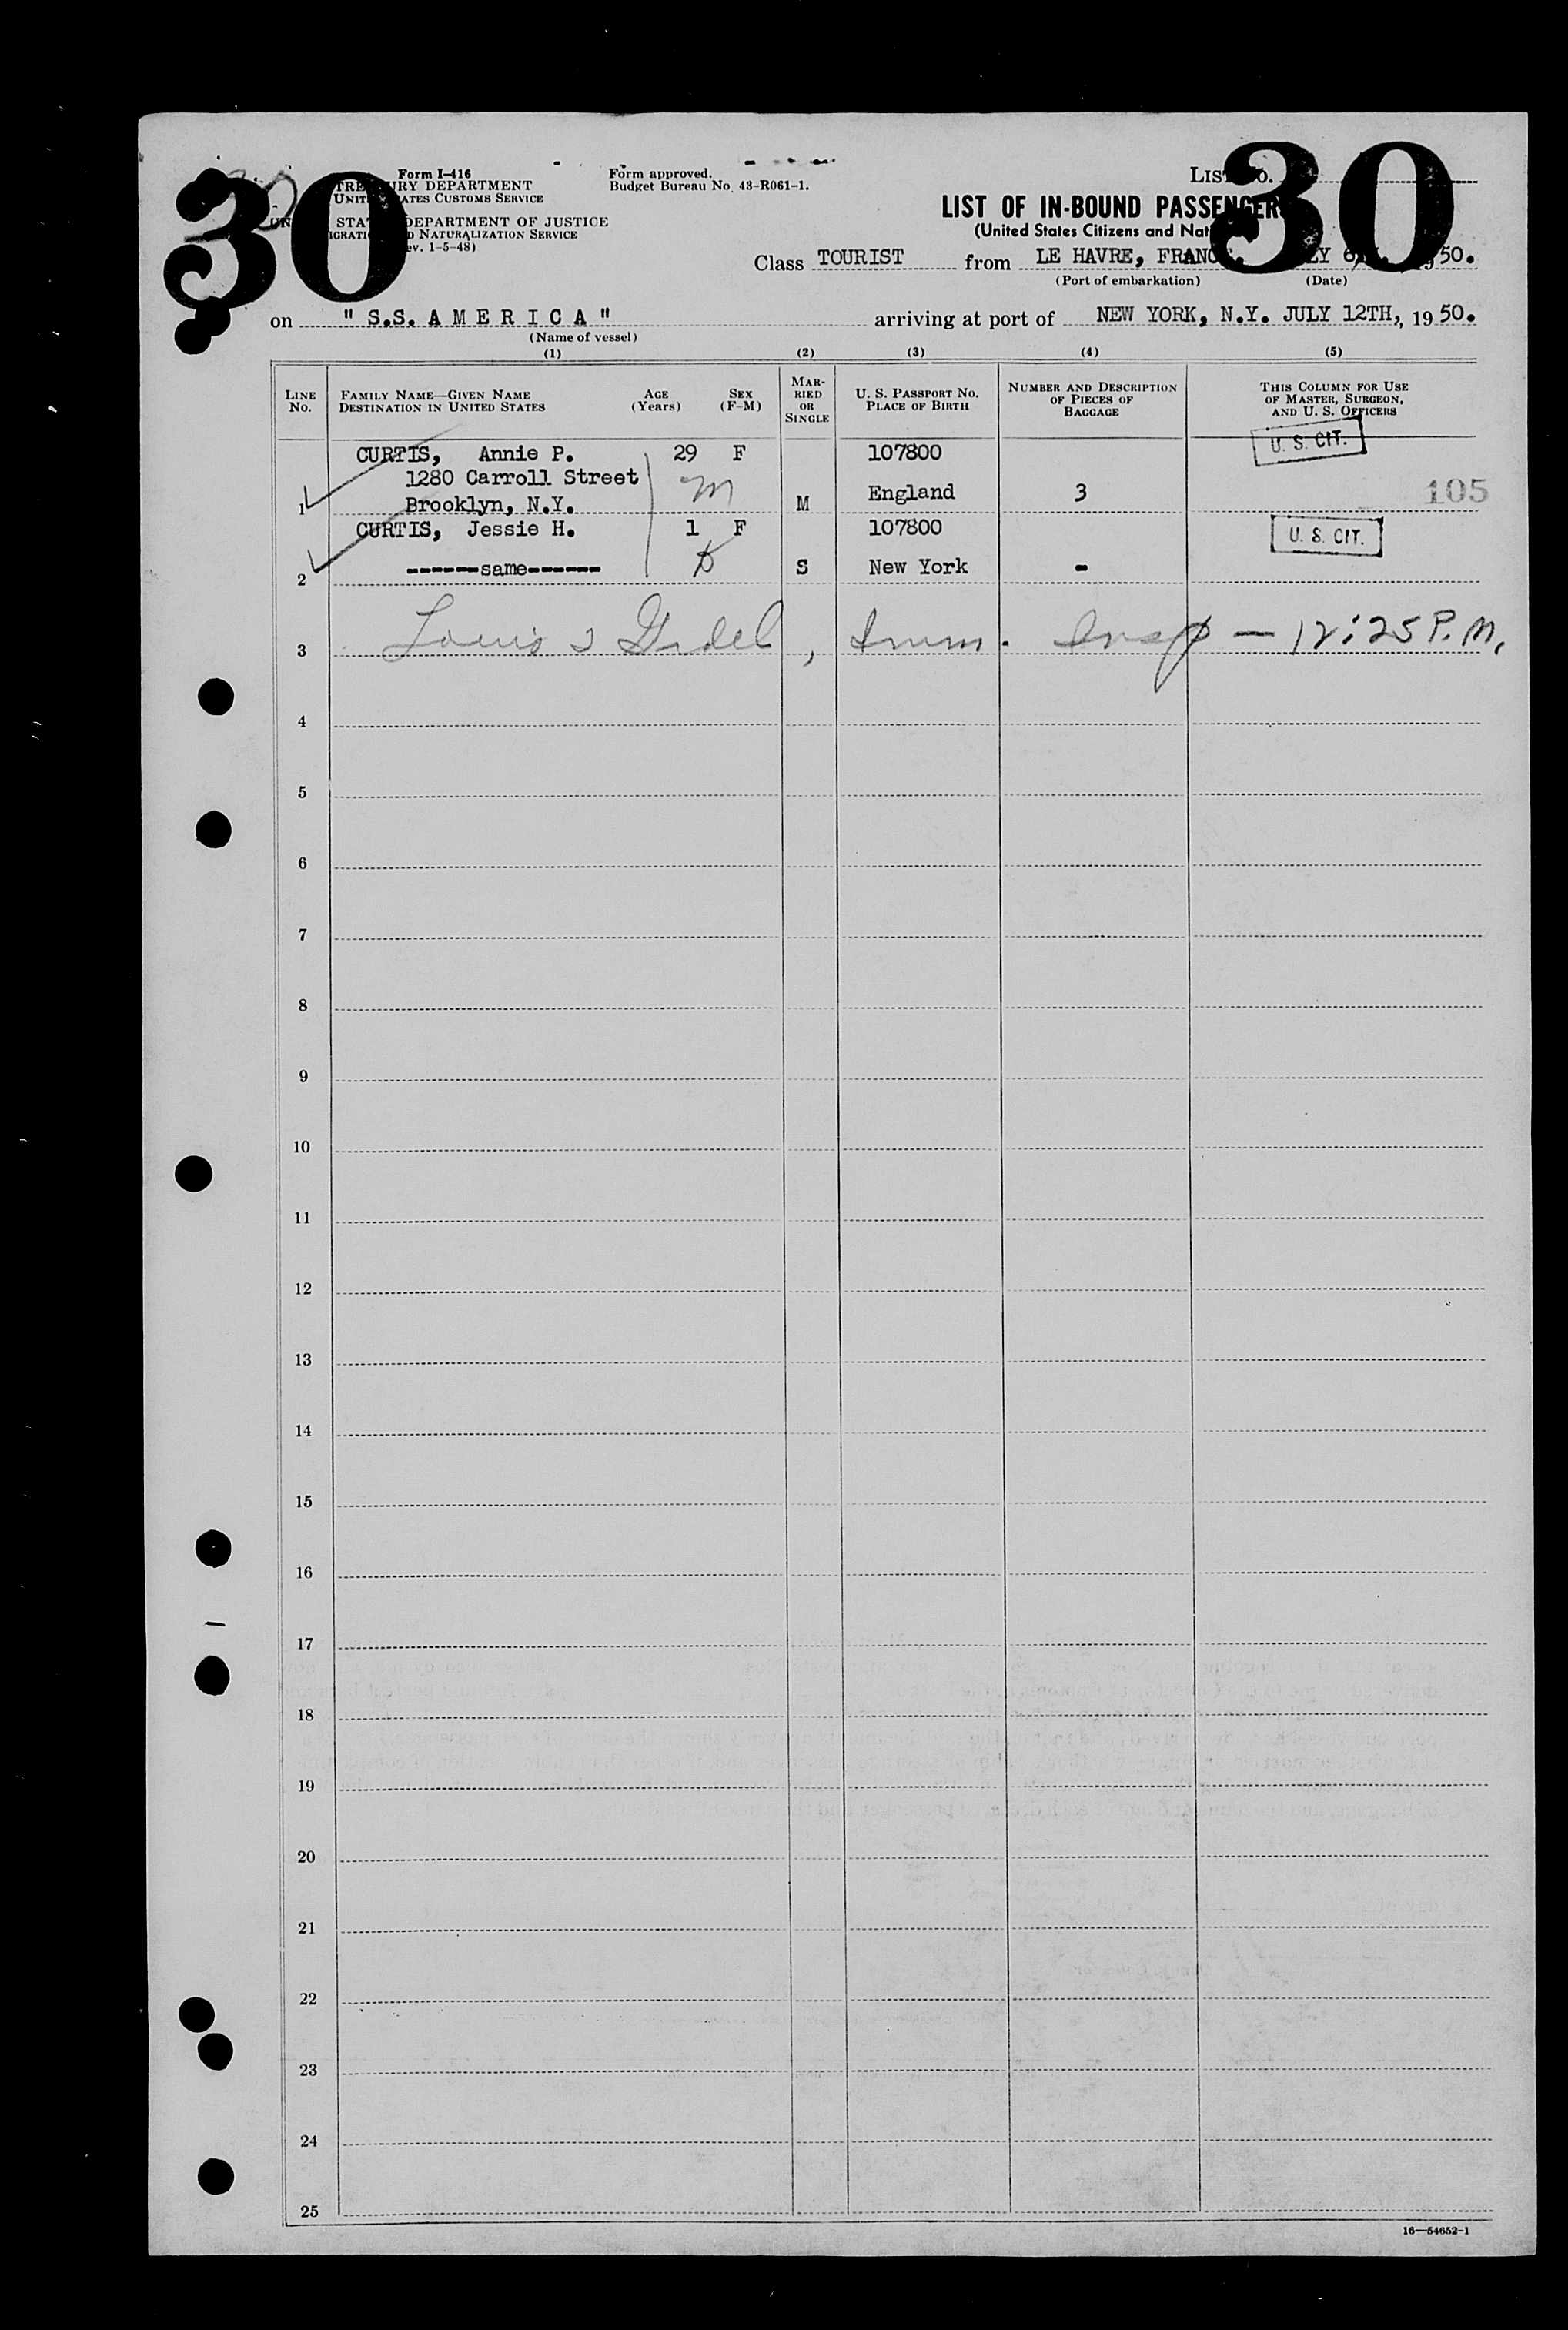 30
30
Form I-416
TREASURY DEPARTMENT
UNITED STATES CUSTOMS SERVICE
UNITED STATES DEPARTMENT OF JUSTICE
IMMIGRATION AND NATURALIZATION SERVICE
(Rev. 1-5-48)
Form approved.
Budget Bureau No. 43-R061-1.
LIST No.
LIST OF IN-BOUND PASSENGERS
(United States Citizens and Nat
Class TOURIST from LE HAVRE, FRANCE, JULY 6 1950.
(Port of embarkation) (Date)
on "S.S. AMERICA" arriving at port of NEW YORK, N.Y. JULY 12TH, 1950.
(Name of vessel)
(1) (2) (3) (4) (5)
LINE No. FAMILY NAME—GIVEN NAME DESTINATION IN UNITED STATES AGE (Years) SEX (F-M) MARRIED OR SINGLE U. S. PASSPORT NO. PLACE OF BIRTH NUMBER AND DESCRIPTION OF PIECES OF BAGGAGE THIS COLUMN FOR USE OF MASTER, SURGEON, AND U. S. OFFICERS
CURTIS, Annie P. 29 F 107800 U. S. CIT.
1280 Carroll Street m England 3 105
1 Brooklyn, N.Y. M
CURTIS, Jessie H. 1 F 107800 U. S. CIT.
2 ------same------ S New York -
3 Louis , Imm. Insp — 12:25 P.M.
4
5
6
7
8
9
10
11
12
13
14
15
16
17
18
19
20
21
22
23
24
25
16—54652-1